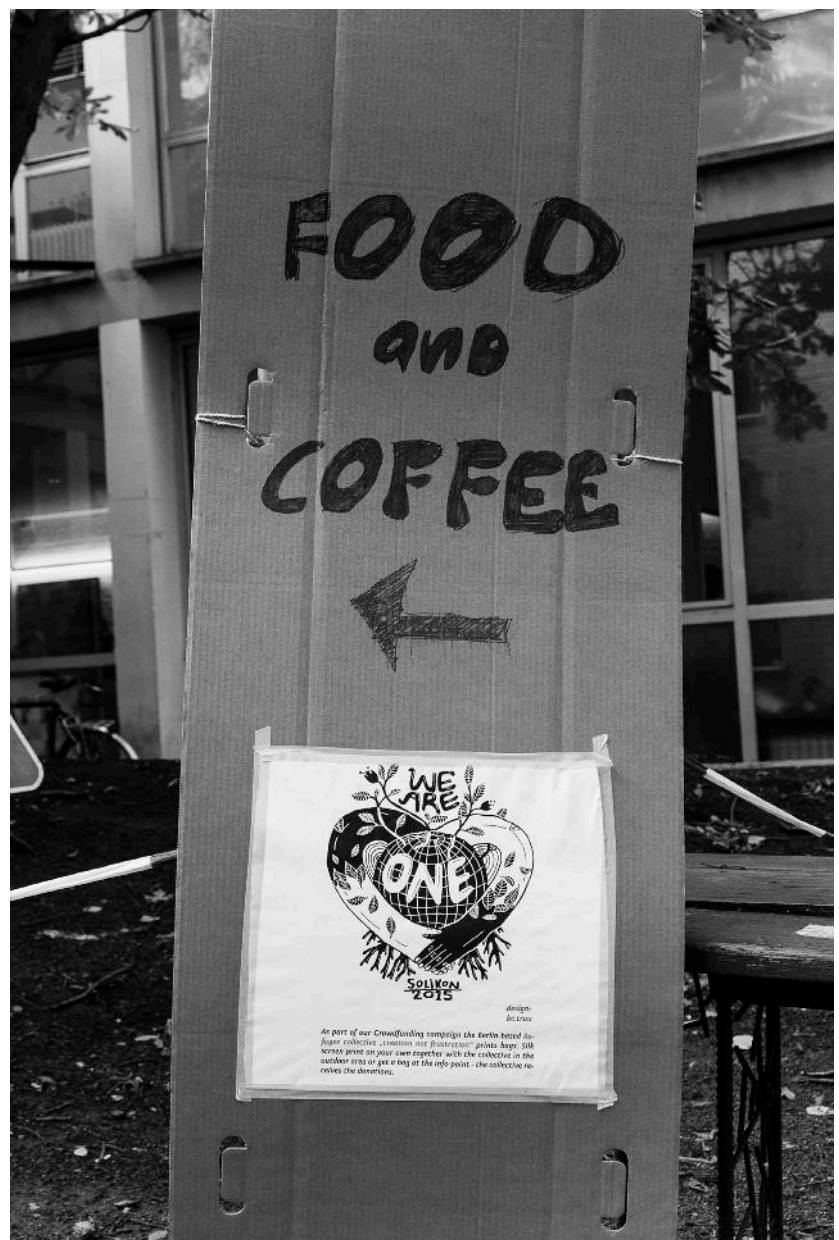 FOOD
and
COFFEE
WE
ARE
ONE
SOLIKON
2015
design-
be.true
As part of our Crowdfunding campaign the Berlin-based Re-
fugee collective „creation not frustration" prints bags. Silk
screen print on your own together with the collective in the
outdoor area or get a bag at the info-point - the collective re-
ceives the donations.